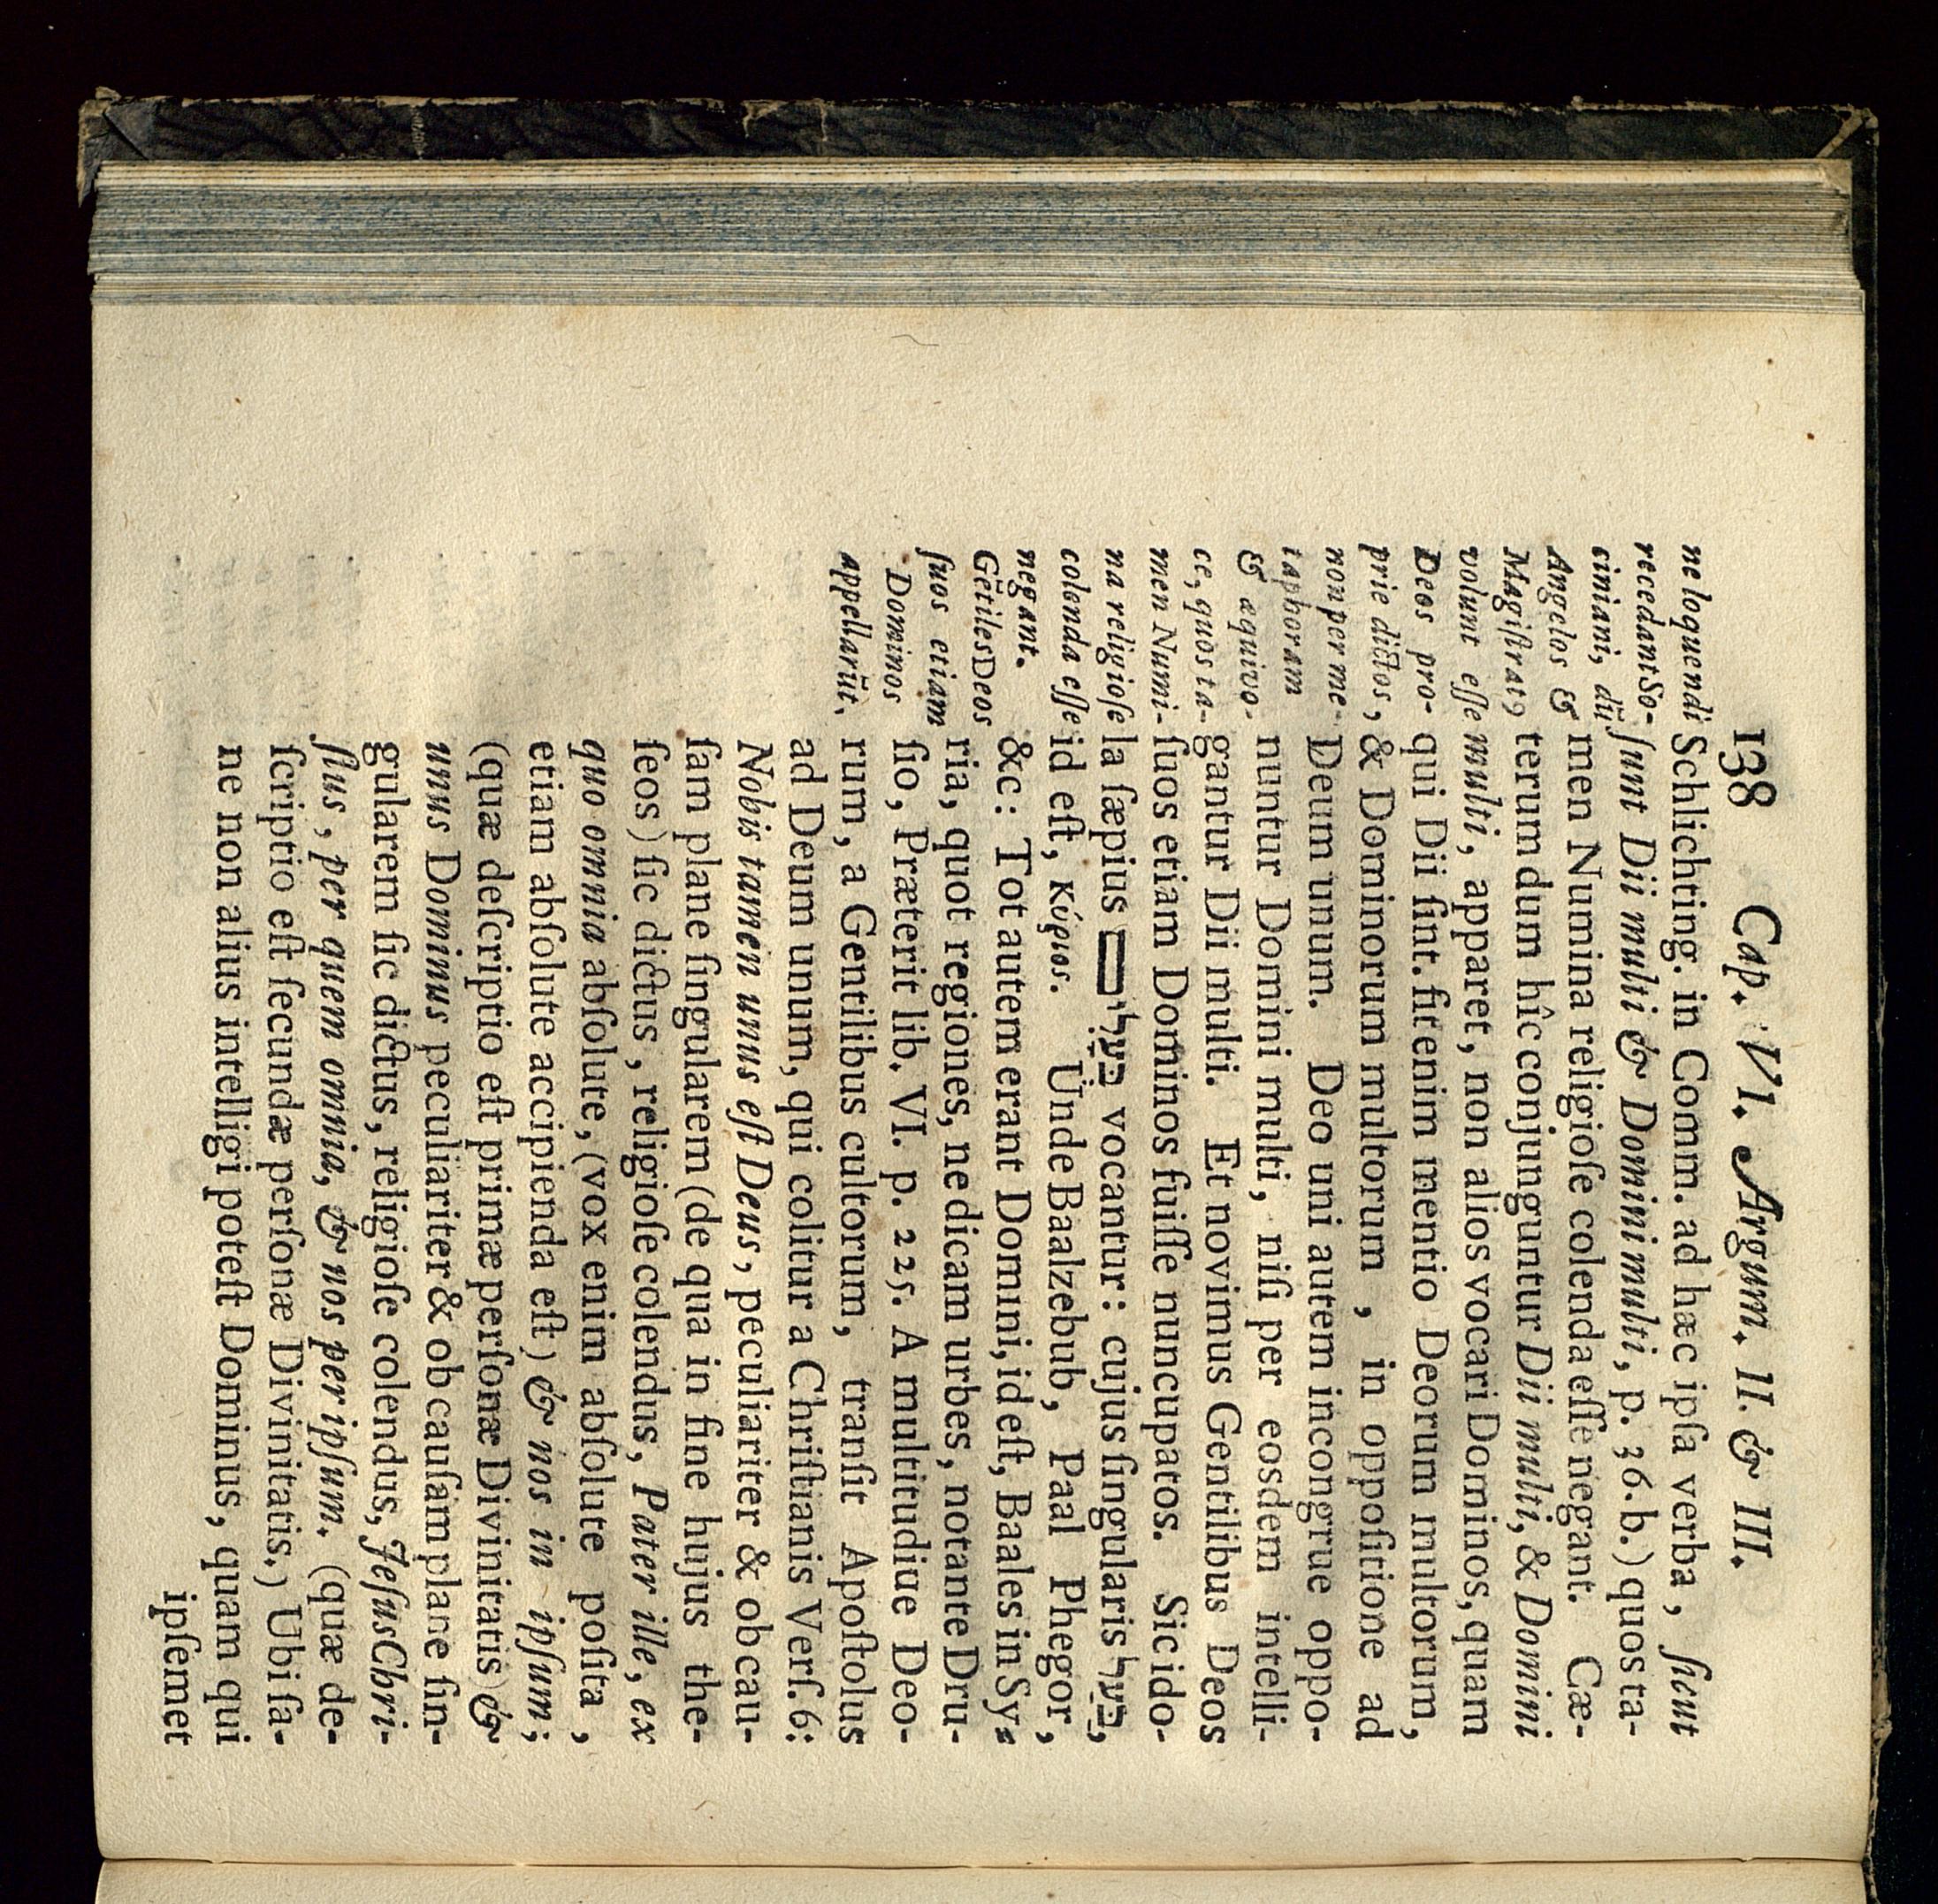 138 Cap. VI. Argum. II. & III.
ne loquendi
recedantSo-
ciniani, dũ
Angelos &
Magiſtratꝰ
volunt eſſe
Deos pro-
prie dictos,
non per me-
taphoram
& æquivo-
ce, quos ta-
men Numi-
na religioſe
colenda eſſe
negant.
Gẽtiles Deos
ſuos etiam
Dominos
appellarũt.
Schlichting. in Comm. ad hæc ipſa verba, ſicut
ſunt Dii multi & Domini multi, p. 36. b.) quos ta-
men Numina religioſe colenda eſſe negant. Cæ-
terum dum hîc conjunguntur Dii multi, & Domini
multi, apparet, non alios vocari Dominos, quam
qui Dii ſint. fit enim mentio Deorum multorum,
& Dominorum multorum, in oppoſitione ad
Deum unum. Deo uni autem incongrue oppo-
nuntur Domini multi, niſi per eosdem intelli-
gantur Dii multi. Et novimus Gentilibus Deos
ſuos etiam Dominos fuiſſe nuncupatos. Sic ido-
la ſæpius בעלים vocantur: cujus ſingularis בעל,
id eſt, Κύριος. Unde Baalzebub, Paal Phegor,
&c: Tot autem erant Domini, id eſt, Baales in Sy-
ria, quot regiones, ne dicam urbes, notante Dru-
ſio, Præterit lib. VI. p. 225. A multitudiue Deo-
rum, a Gentilibus cultorum, tranſit Apoſtolus
ad Deum unum, qui colitur a Chriſtianis Verſ. 6:
Nobis tamen unus eſt Deus, peculiariter & ob cau-
ſam plane ſingularem (de qua in fine hujus the-
ſeos) ſic dictus, religioſe colendus, Pater ille, ex
quo omnia abſolute, (vox enim abſolute poſita,
etiam abſolute accipienda eſt) & nos in ipſum;
(quæ deſcriptio eſt primæ perſonæ Divinitatis) &
unus Dominus peculiariter & ob cauſam plane ſin-
gularem ſic dictus, religioſe colendus, JeſusChri-
ſtus, per quem omnia, & nos per ipſum. (quæ de-
ſcriptio eſt ſecundæ perſonæ Divinitatis.) Ubi ſa-
ne non alius intelligi poteſt Dominus, quam qui
ipſemet